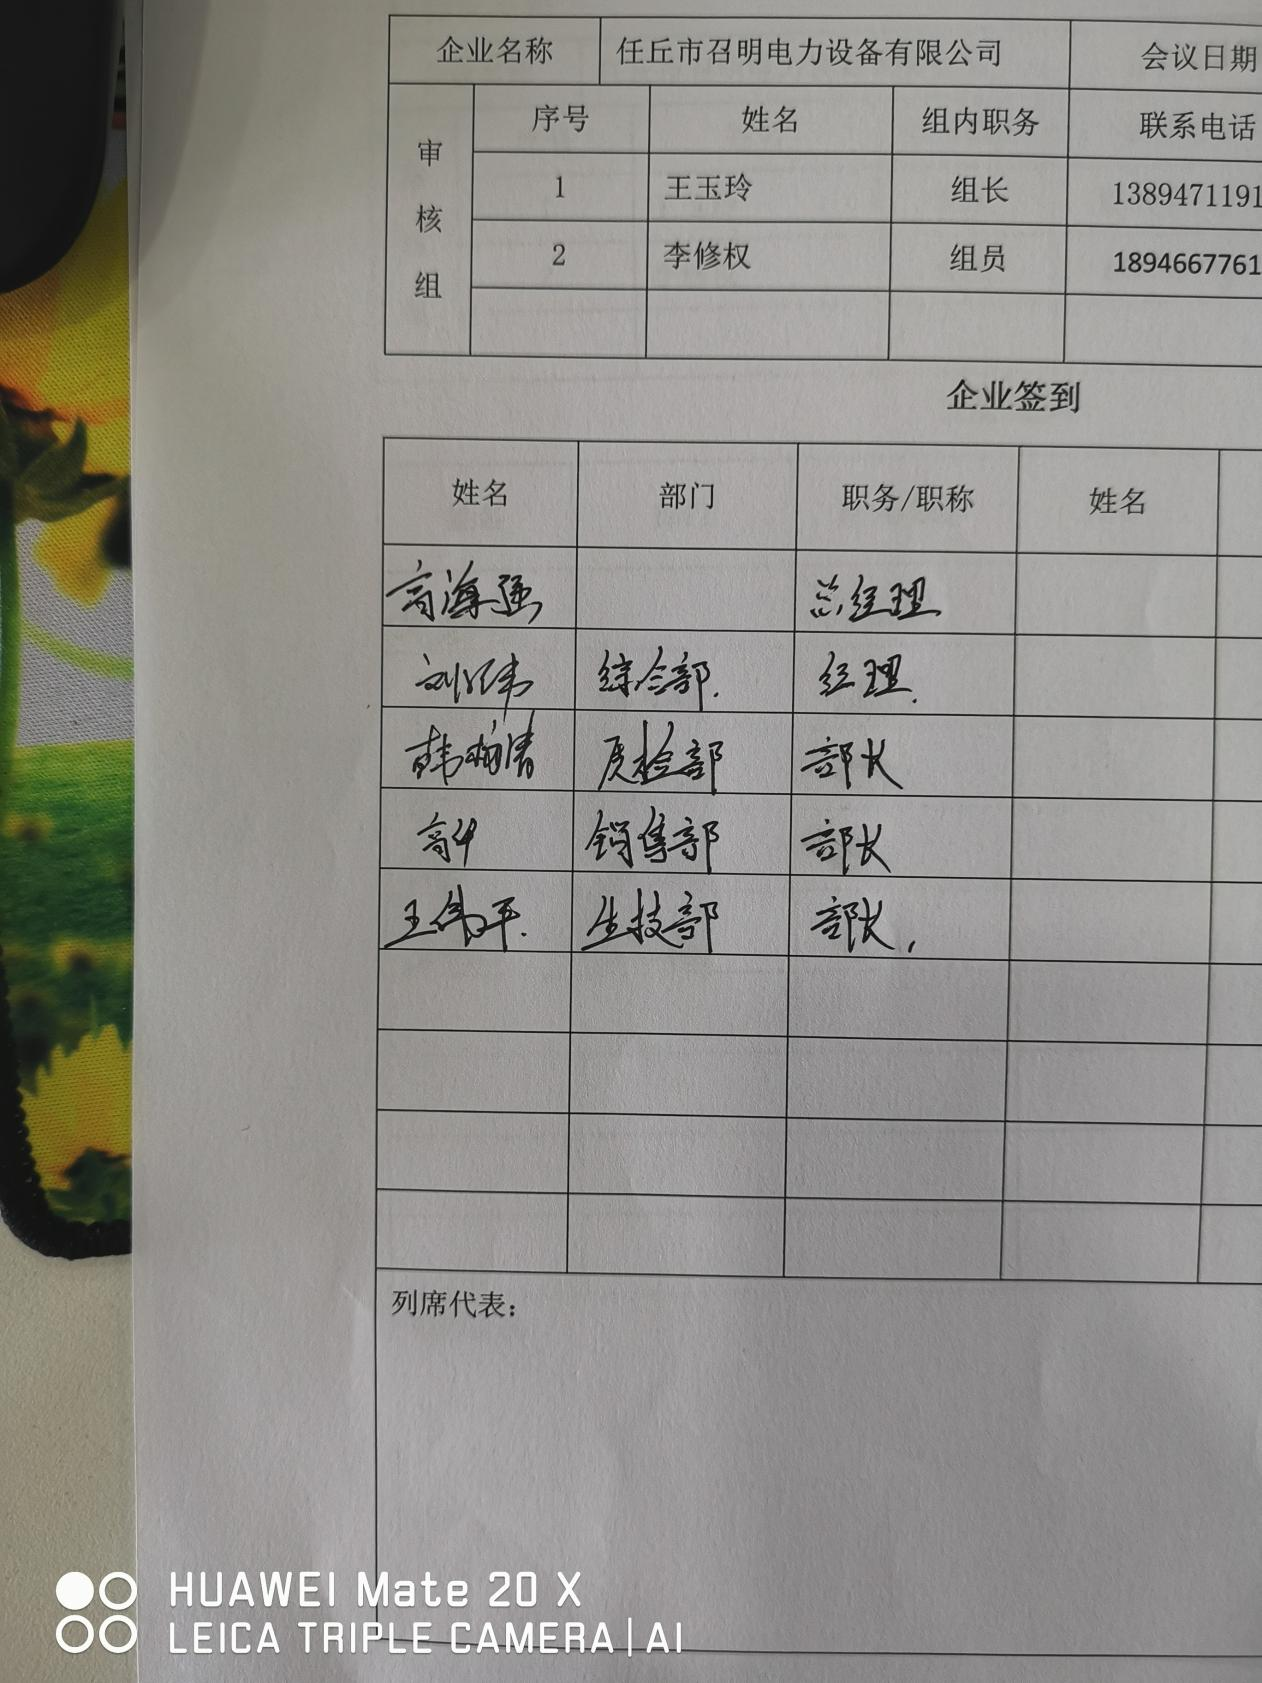 企业名称 任丘市召明电力设备有限公司 会议日期
审核组 序号 姓名 组内职务 联系电话
1 王玉玲 组长 1389471191
2 李修权 组员 1894667761
企业签到
姓名 部门 职务/职称 姓名
高海强 总经理
综合部. 经理.
质检部 部长
销售部 部长
王伟平. 生技部 部长,
列席代表：
HUAWEI Mate 20 X
LEICA TRIPLE CAMERA | AI